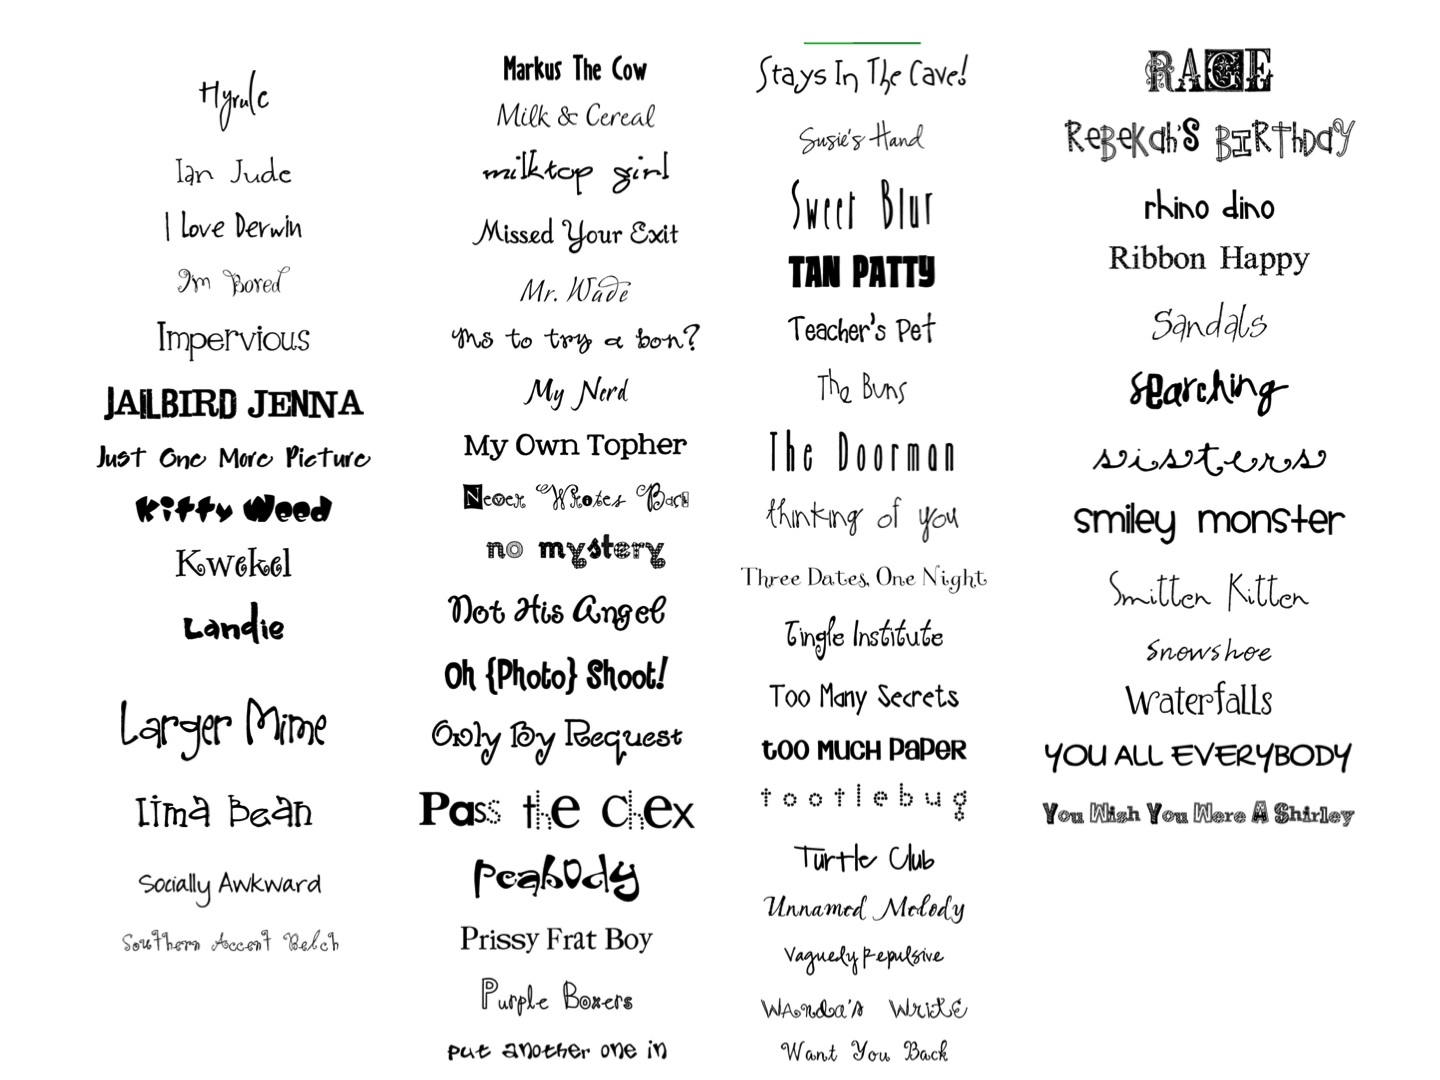 Hyrule
Ian Jude
I Love Derwin
I'm Bored
Impervious
JAILBIRD JENNA
Just One More Picture
Kitty Weed
Kwekel
Landie
Larger Mime
Lima Bean
Socially Awkward
Southern Accent Belch
Markus The Cow
Milk & Cereal
milktop girl
Missed Your Exit
Mr. Wade
Ms to try a bon?
My Nerd
My Own Topher
Never Writes Back
no mystery
Not His Angel
Oh {Photo} Shoot!
Only By Request
Pass the chex
Peabody
Prissy Frat Boy
Purple Boxers
put another one in
Stays In The Cave!
Susie's Hand
Sweet Blur
TAN PATTY
Teacher's Pet
The Buns
The Doorman
thinking of you
Three Dates, One Night
Tingle Institute
Too Many Secrets
tOO MUCH PaPER
tootlebug
Turtle Club
Unnamed Melody
Vaguely Repulsive
WAnda's WritE
Want You Back
RAGE
ReBEKah'S BIRThDaY
rhino dino
Ribbon Happy
Sandals
searching
sisters
smiley monster
Smitten Kitten
Snowshoe
Waterfalls
YOU ALL EVERYBODY
You Wish You Were A Shirley